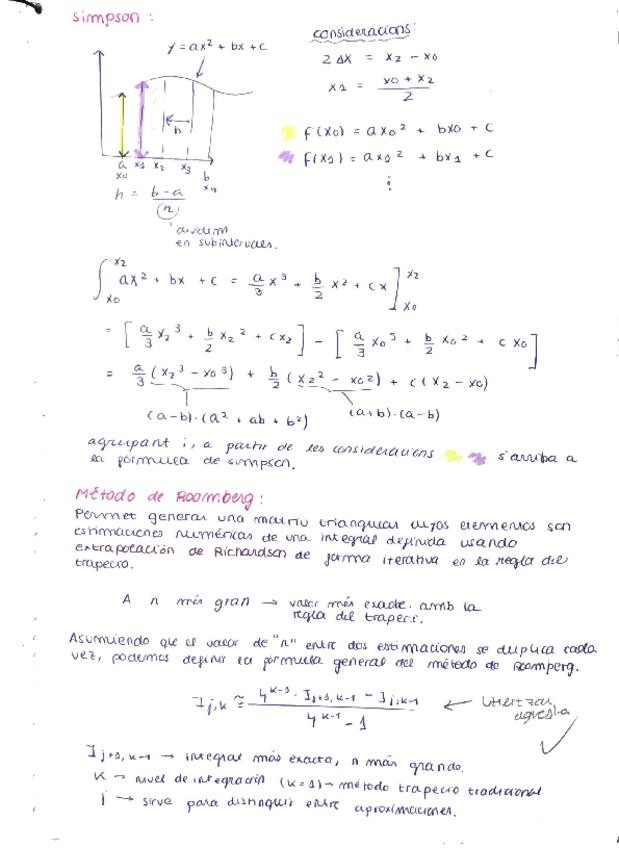 simpson :
y = ax² + bx + c
h
a x₁ x₂ x₃ b
x₀ xₙ
h = b-a / n
dividim
en subintervales.
consideracions:
2 Δx = x₂ - x₀
x₁ = x₀ + x₂ / 2
f(x₀) = ax₀² + bx₀ + c
f(x₁) = ax₁² + bx₁ + c
⋮
∫x₀^x₂ ax² + bx + c = a/3 x³ + b/2 x² + cx ]x₀^x₂
= [ a/3 x₂³ + b/2 x₂² + cx₂ ] - [ a/3 x₀³ + b/2 x₀² + c x₀ ]
= a/3 (x₂³ - x₀³) + b/2 (x₂² - x₀²) + c (x₂ - x₀)
(a-b)·(a² + ab + b²) (a+b)·(a-b)
agrupant i, a partir de les consideracions s'arriba a
la fórmula de simpson.
Método de Roomberg:
Permet generar una matriu triangular cuyos elementos son
estimaciones numéricas de una integral definida usando
extrapolación de Richardson de forma iterativa en la regla del
trapecio.
A n més gran → valor més exacte. amb la
regla del trapeci.
Asumiendo que el valor de "n" entre dos estimaciones se duplica cada
vez, podemos definir la fórmula general del método de Roomperg.
I j,k ≅ 4^k-1 · I j+1,k-1 - I j,k-1 / 4^k-1 - 1 ← Utilitzar
aquesta
✓
I j+1,k-1 → integral más exacta, n más grande.
K → nivel de integración (k=1) → método trapecio tradicional
j → sirve para distinguir entre aproximaciones.